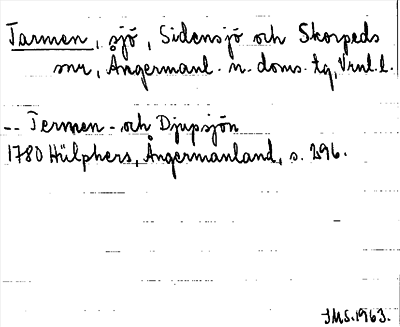 Tarmen, sjö, Sidensjö och Skorpeds
snr, Ångermanl. n. doms. tg, Vrnl. l.
-- Termen- och Djupsjön
1780 Hülphers, Ångermanland, s. 296.
JMS. 1963.